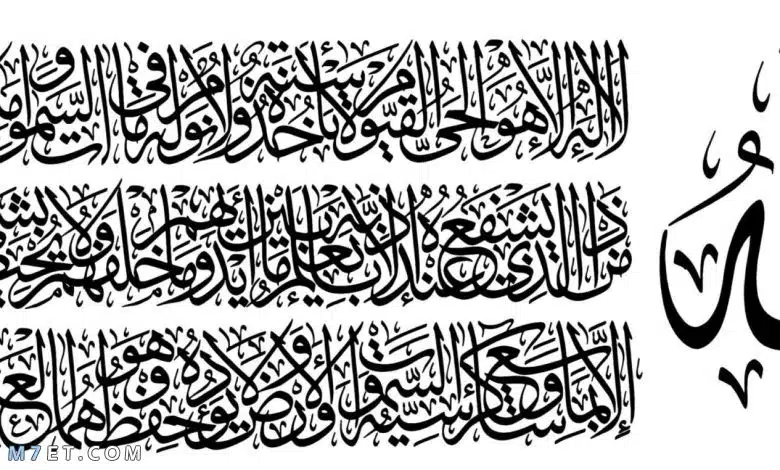 لا إله إلا هو الحي القيوم لا تأخذه سنة ولا نوم له ما في السموات وما
من ذا الذي يشفع عنده إلا بإذنه يعلم ما بين أيديهم وما خلفهم ولا
إلا بما شاء وسع كرسيه السموات والأرض ولا يؤده حفظهما وهو
M7ET.COM